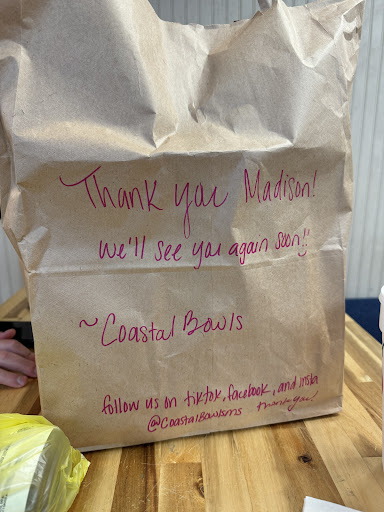 Thank you Madison!
we'll see you again soon!!
~Coastal Bowls
follow us on tiktok, facebook, and insta
@CoastalBowlsms thank you!